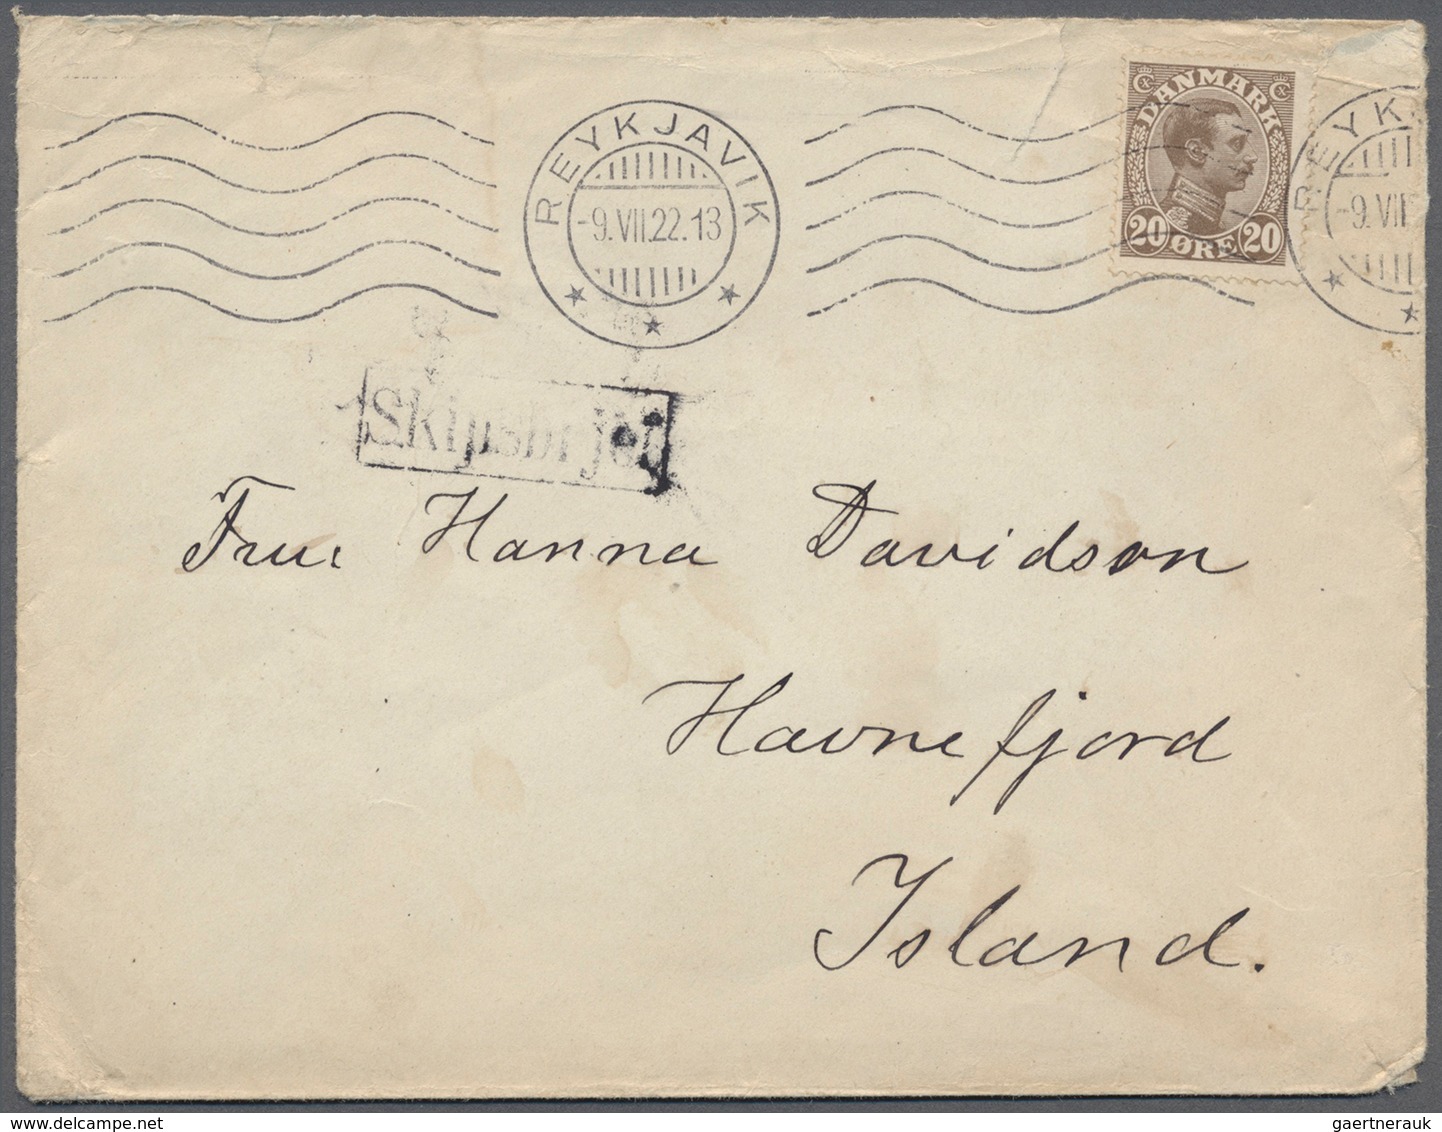 REYKJAVIK
-9.VII.22.13
DANMARK
20 ØRE 20
REYK
-9.VII
Skipsbrjef
Frue Hanna Davidson
Havnefjord
Island.
gaertnerauk @ delcampe.net